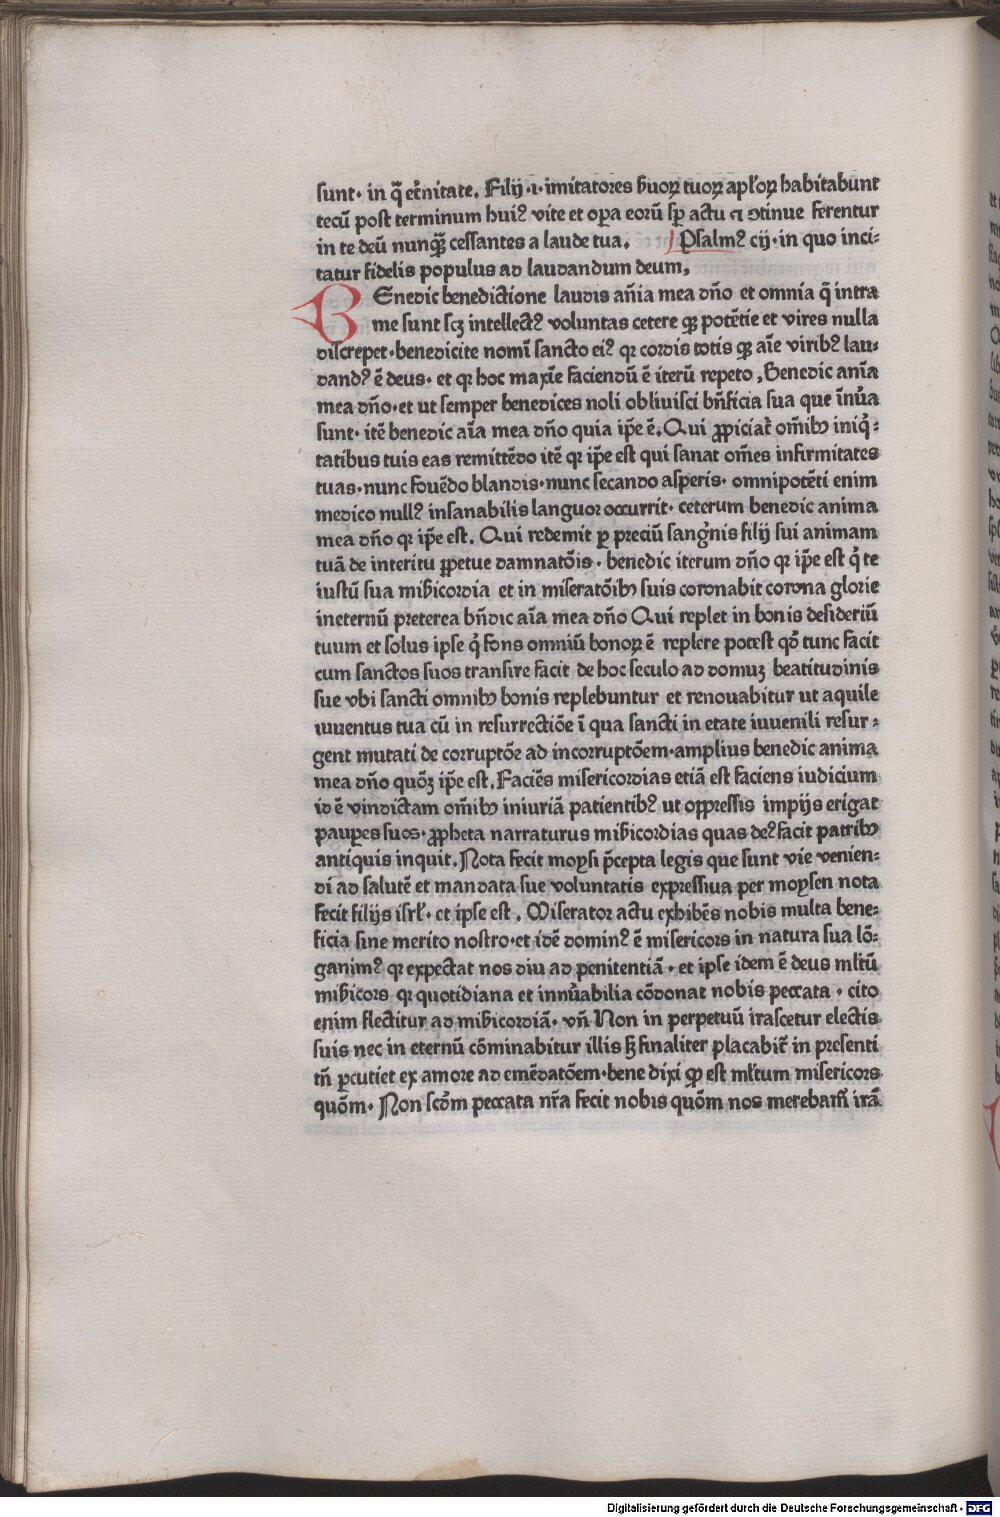 sunt· in q̄ et̉nitate. Filij ·i· imitatores s̄uoꝝ tuoꝝ apl̉oꝝ habitabunt
tecū post terminum huiꝰ vite et oꝑa eorū sꝑ actu ⁊ ↄtinue ferentur
in te deū nunq̄ꝫ cessantes a laude tua. Psalmꝰ cij·in quo inci⸗
tatur fidelis populus ad laudandum deum,
BEnedic benedictione laudis an̄ia mea dn̄o et omnia q̄ intra
me sunt scꝫ intellectꝰ voluntas cetere qꝫ potētie et vires nulla
discrepet·benedicite nomī sancto eiꝰ qꝛ cordis totis qꝫ aīe viribꝰ lau⸗
dandꝰ ē deus· et qꝛ hoc maxīe faciendū ē iterū repeto, Benedic anīa
mea dn̄o·et ut semper benedices noli obliuisci bn̄ficia sua que īnu̓a
sunt· itē benedic aīa mea dn̄o quia ip̄e ē. Qui ꝓpiciat̉ om̄ibꝫ iniq̓⸗
tatibus tuis eas remittēdo itē qꝛ ip̄e est qui sanat om̄es infirmitates
tuas·nunc fouēdo blandis·nunc secando asperis· omnipotēti enim
medico nullꝰ insanabilis languor occurrit· ceterum benedic anima
mea dn̄o qꝛ ip̄e est. Qui redemit ꝑ preciū sang̓nis filij sui animam
tuā de interitu ꝑpetue damnatōis · benedic iterum dn̄o qꝛ ip̄e est q̓ te
iustū sua mis̄icordia et in miseratōibꝫ suis coronabit corona glorie
ineternū preterea bn̄dic aīa mea dn̄o Qui replet in bonis desideriū
tuum et solus ipse q̓ fons omniū bonoꝝ ē replere potest qd̄ tunc facit
cum sanctos suos transire facit de hoc seculo ad domuꝫ beatitudinis
sue vbi sancti omnibꝫ bonis replebuntur et renouabitur ut aquile
iuuentus tua cū in resurrectiōe ī qua sancti in etate iuuenili resur⸗
gent mutati de corruptōe ad incorruptōem·amplius benedic anima
mea dn̄o quōꝫ ip̄e est. Faciēs misericordias etiā est faciens iudicium
id ē vindictam om̄ibꝫ iniuriā patientibꝰ ut oppressis impijs erigat
pauꝑes suos· ꝓpheta narraturus mis̄icordias quas deꝰ facit patribꝫ
antiquis inquit. Nota fecit moysi p̄cepta legis que sunt vie venien⸗
di ad salutē et mandata sue voluntatis expressiua per moysen nota
fecit filijs isrl̉· et ipse est. Miserator actu exhibēs nobis multa bene⸗
ficia sine merito nostro·et idē dominꝰ ē misericors in natura sua lō⸗
ganimꝰ qꝛ expectat nos diu ad penitentiā · et ipse idem ē deus ml̉tū
mis̄icors qꝛ quotidiana et innu̓abilia cōdonat nobis peccata · cito
enim flectitur ad mis̄icordiā· vn̄ Non in perpetuū irascetur electis
suis nec in eternū cōminabitur illis sꝫ finaliter placabit̉ in presenti
tn̄ ꝑcutiet ex amore ad emēdatōem·bene dixi ꝙ est ml̉tum misericors
quōm· Non scd̄m peccata nr̄a fecit nobis quōm nos merebam̉ irā
Digitalisierung gefördert durch die Deutsche Forschungsgemeinschaft - DFG